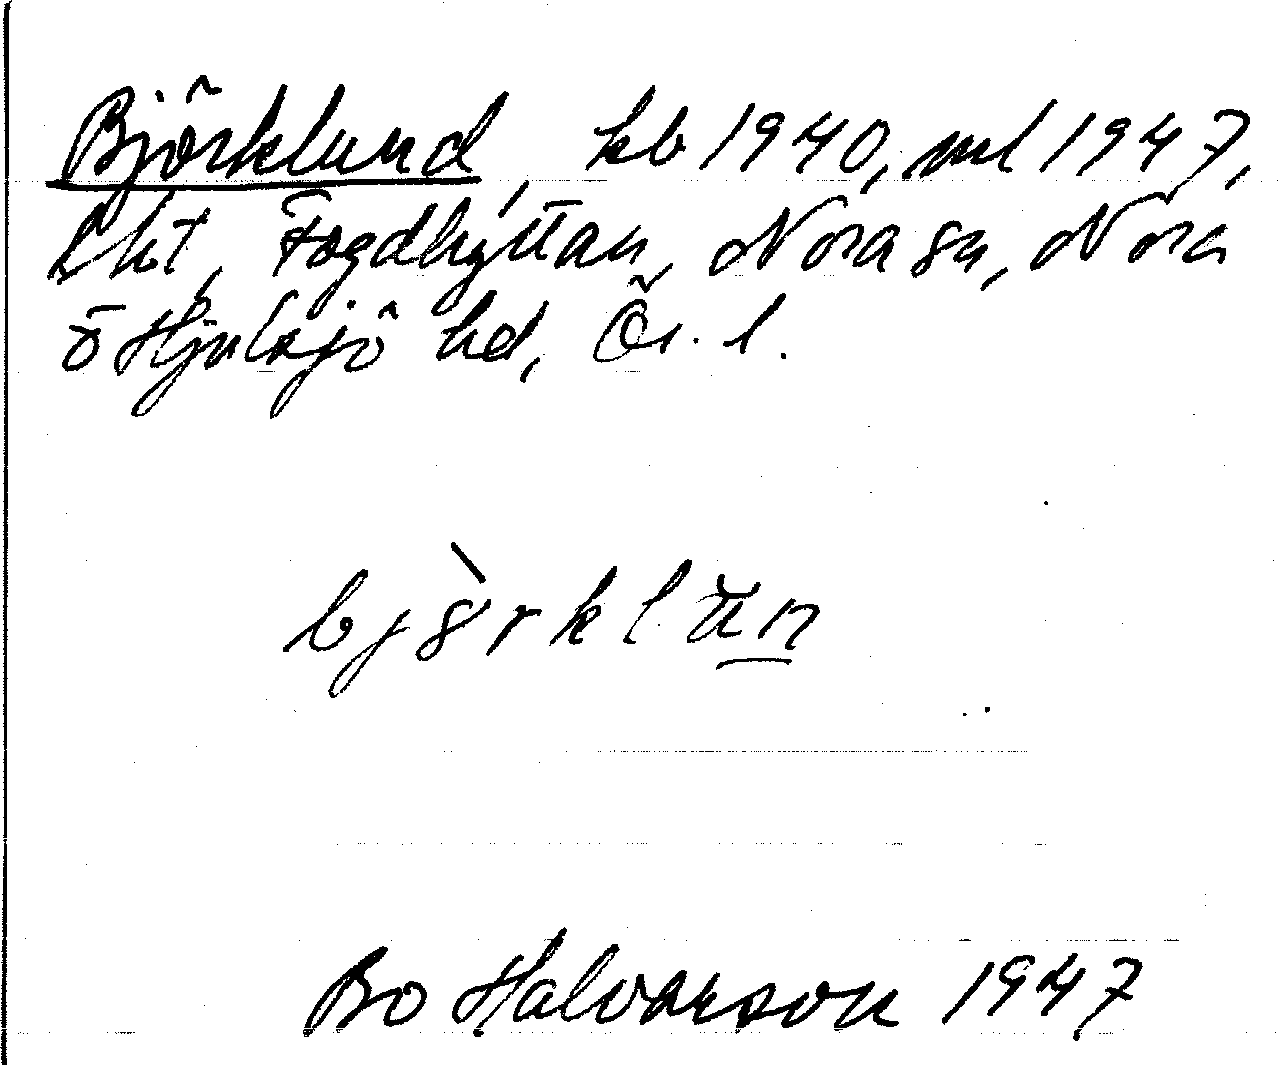 Björklund, kb 1940, ml 1947,
lht, Fogdhyttan, Nora sn, Nora
o Hjulsjö hd, Ör. l.
björklun
Bo Halvarson 1947